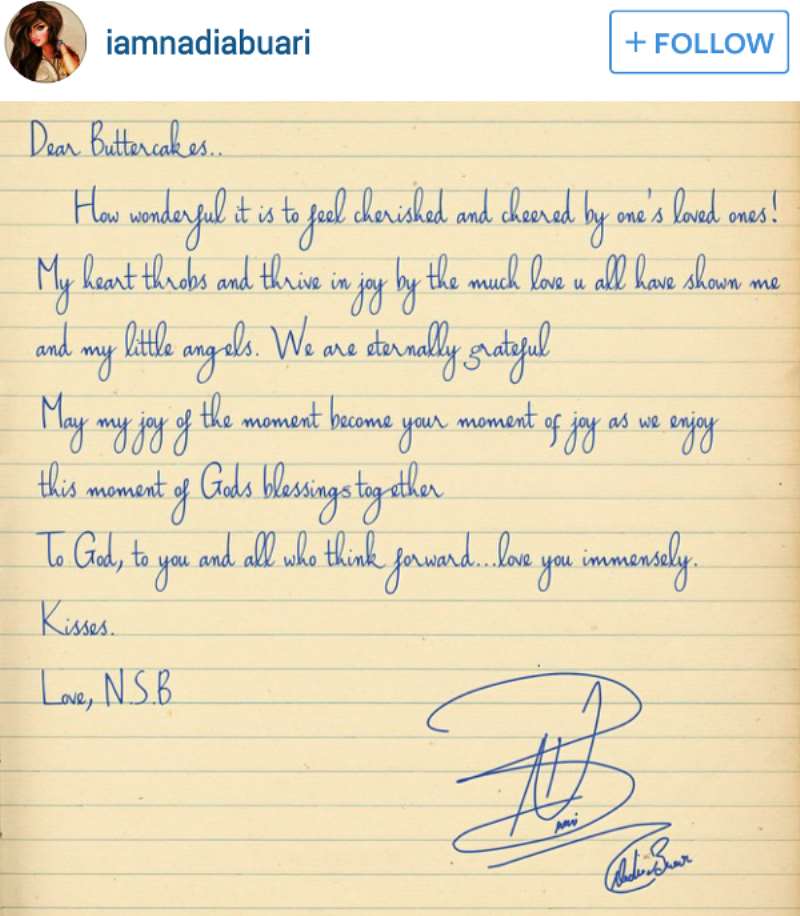 iamnadiabuari
+ FOLLOW
Dear Buttercakes..
How wonderful it is to feel cherished and cheered by one's loved ones!
My heart throbs and thrive in joy by the much love u all have shown me
and my little angels. We are eternally grateful
May my joy of the moment become your moment of joy as we enjoy
this moment of Gods blessings together
To God, to you and all who think forward...love you immensely.
Kisses.
Love, N.S.B
Nadia Buari